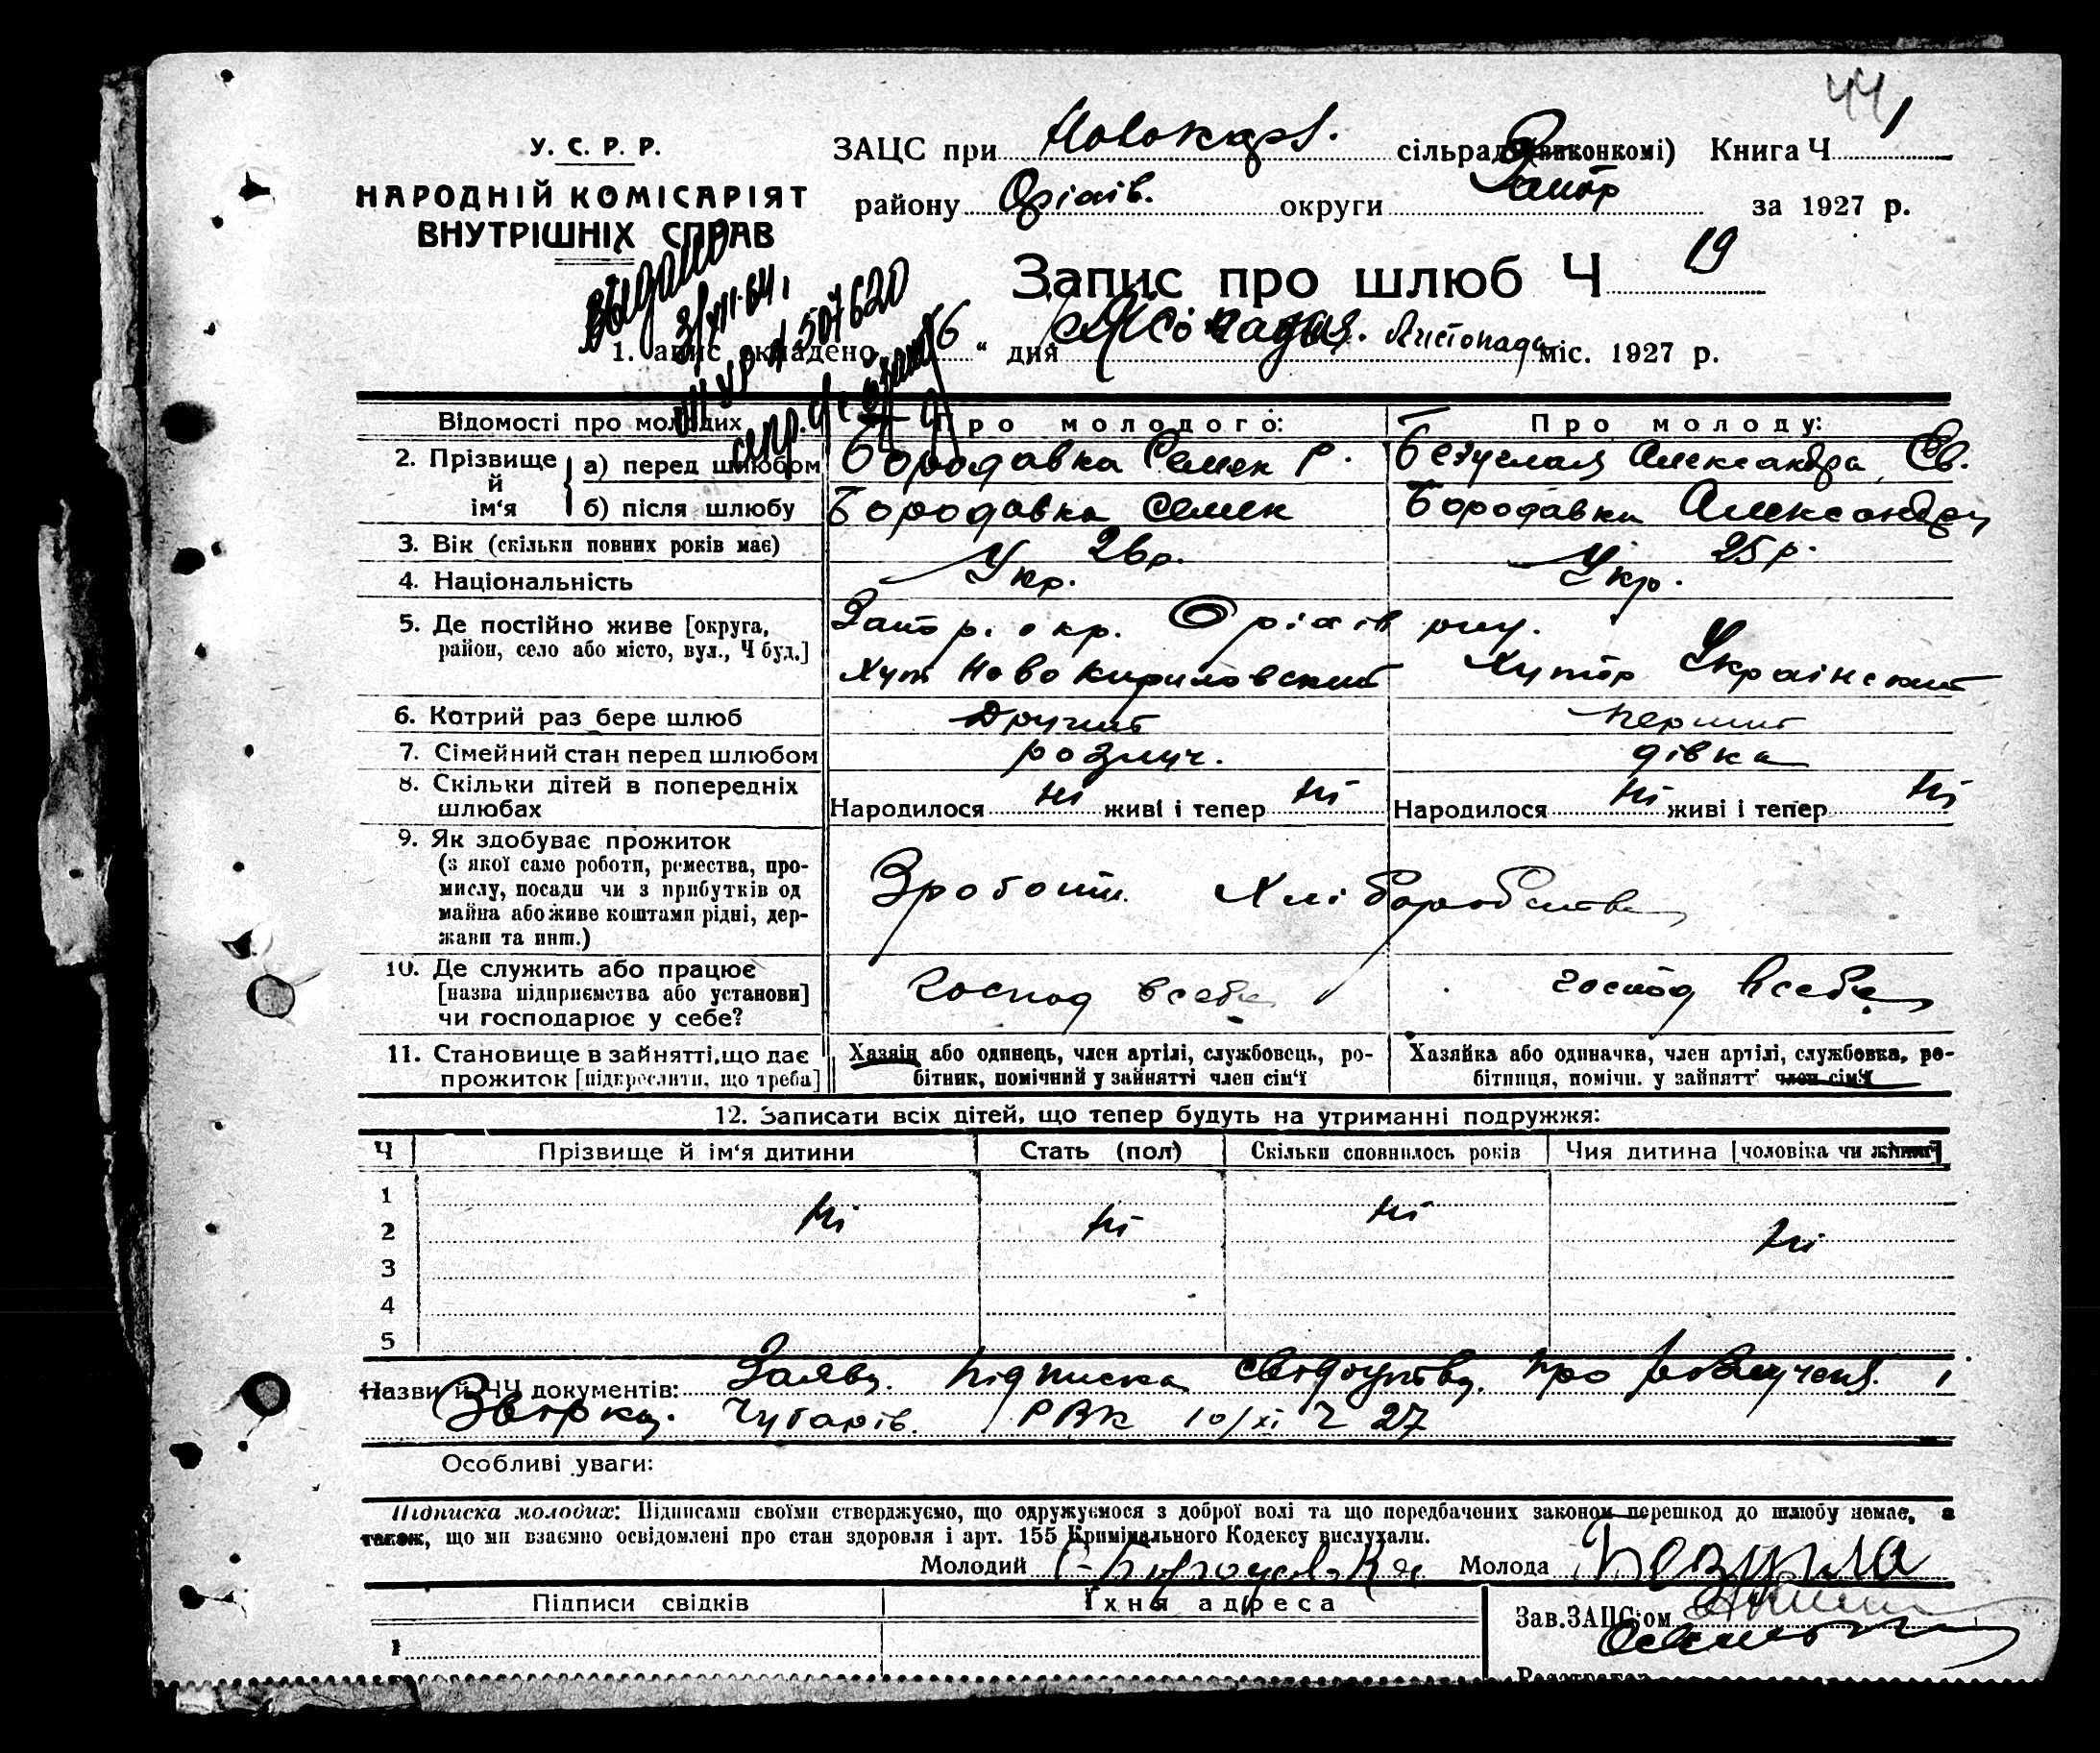 44
У. С. Р. Р.
НАРОДНІЙ КОМІСАРІЯТ
ВНУТРІШНІХ СПРАВ
ЗАЦС при сільраді (виконкомі) Книга Ч 1
району Оріхів. округи Запор за 1927 р.
Запис про шлюб Ч 19
выдано
3/VII-64
507620
1. Запис складено 16 " дня Листопада міс. 1927 р.
Відомості про молодих Про молодого: Про молоду:
2. Прізвище й ім'я а) перед шлюбом Бородавка Семен Р. Безуглая Александра
б) після шлюбу Бородавка Семен Бородавка Александра
3. Вік (скільки повних років має) 26р. 25р.
4. Національність Укр. Укр.
5. Де постійно живе [округа, район, село або місто, вул., Ч буд.] Запор. окр. Оріхів
Хут Ново Кириловский Хутор Украінский
6. Котрий раз бере шлюб Другий первий
7. Сімейний стан перед шлюбом розлуч. дівка
8. Скільки дітей в попередніх шлюбах Народилося ні живі і тепер ні Народилося ні живі і тепер ні
9. Як здобуває прожиток
(з якої само роботи, ремества, про-
мислу, посади чи з прибутків од
майна або живе коштами рідні, дер-
жави та инш.)
Зроботи Хліборобства
10. Де служить або працює
[назва підприємства або установи]
чи господарює у себе?
господ всебе господ всебе
11. Становище в зайнятті, що дає
прожиток [підкреслити, що треба]
Хазяїн або одинець, член артілі, службовець, ро-
бітник, помічний у зайнятті член сім'ї
Хазяйка або одиначка, член артілі, службовка, ро-
бітниця, помічн. у зайнятт член сім'ї
12. Записати всіх дітей, що тепер будуть на утриманні подружжя:
Ч Прізвище й ім'я дитини Стать (пол) Скільки сповнилось років Чия дитина [чоловіка чи жінки]
1
ні ні ні
2
ні
3
4
5
Назви й ЧЧ документів: Заява. Підписка про розлученя. 1
РВК 10/XI Ч 27
Особливі уваги:
Підписка молодих: Підписами своїми стверджуємо, що одружуємося з доброї волі та що передбачених законом перешкод до шлюбу немає, а
також, що ми взаємно освідомлені про стан здоровля і арт. 155 Кримінального Кодексу вислухали.
Молодий Бородавка Молода Безугла
Підписи свідків Їхня адреса
Зав.ЗАЦС'ом
1
Реєстратор